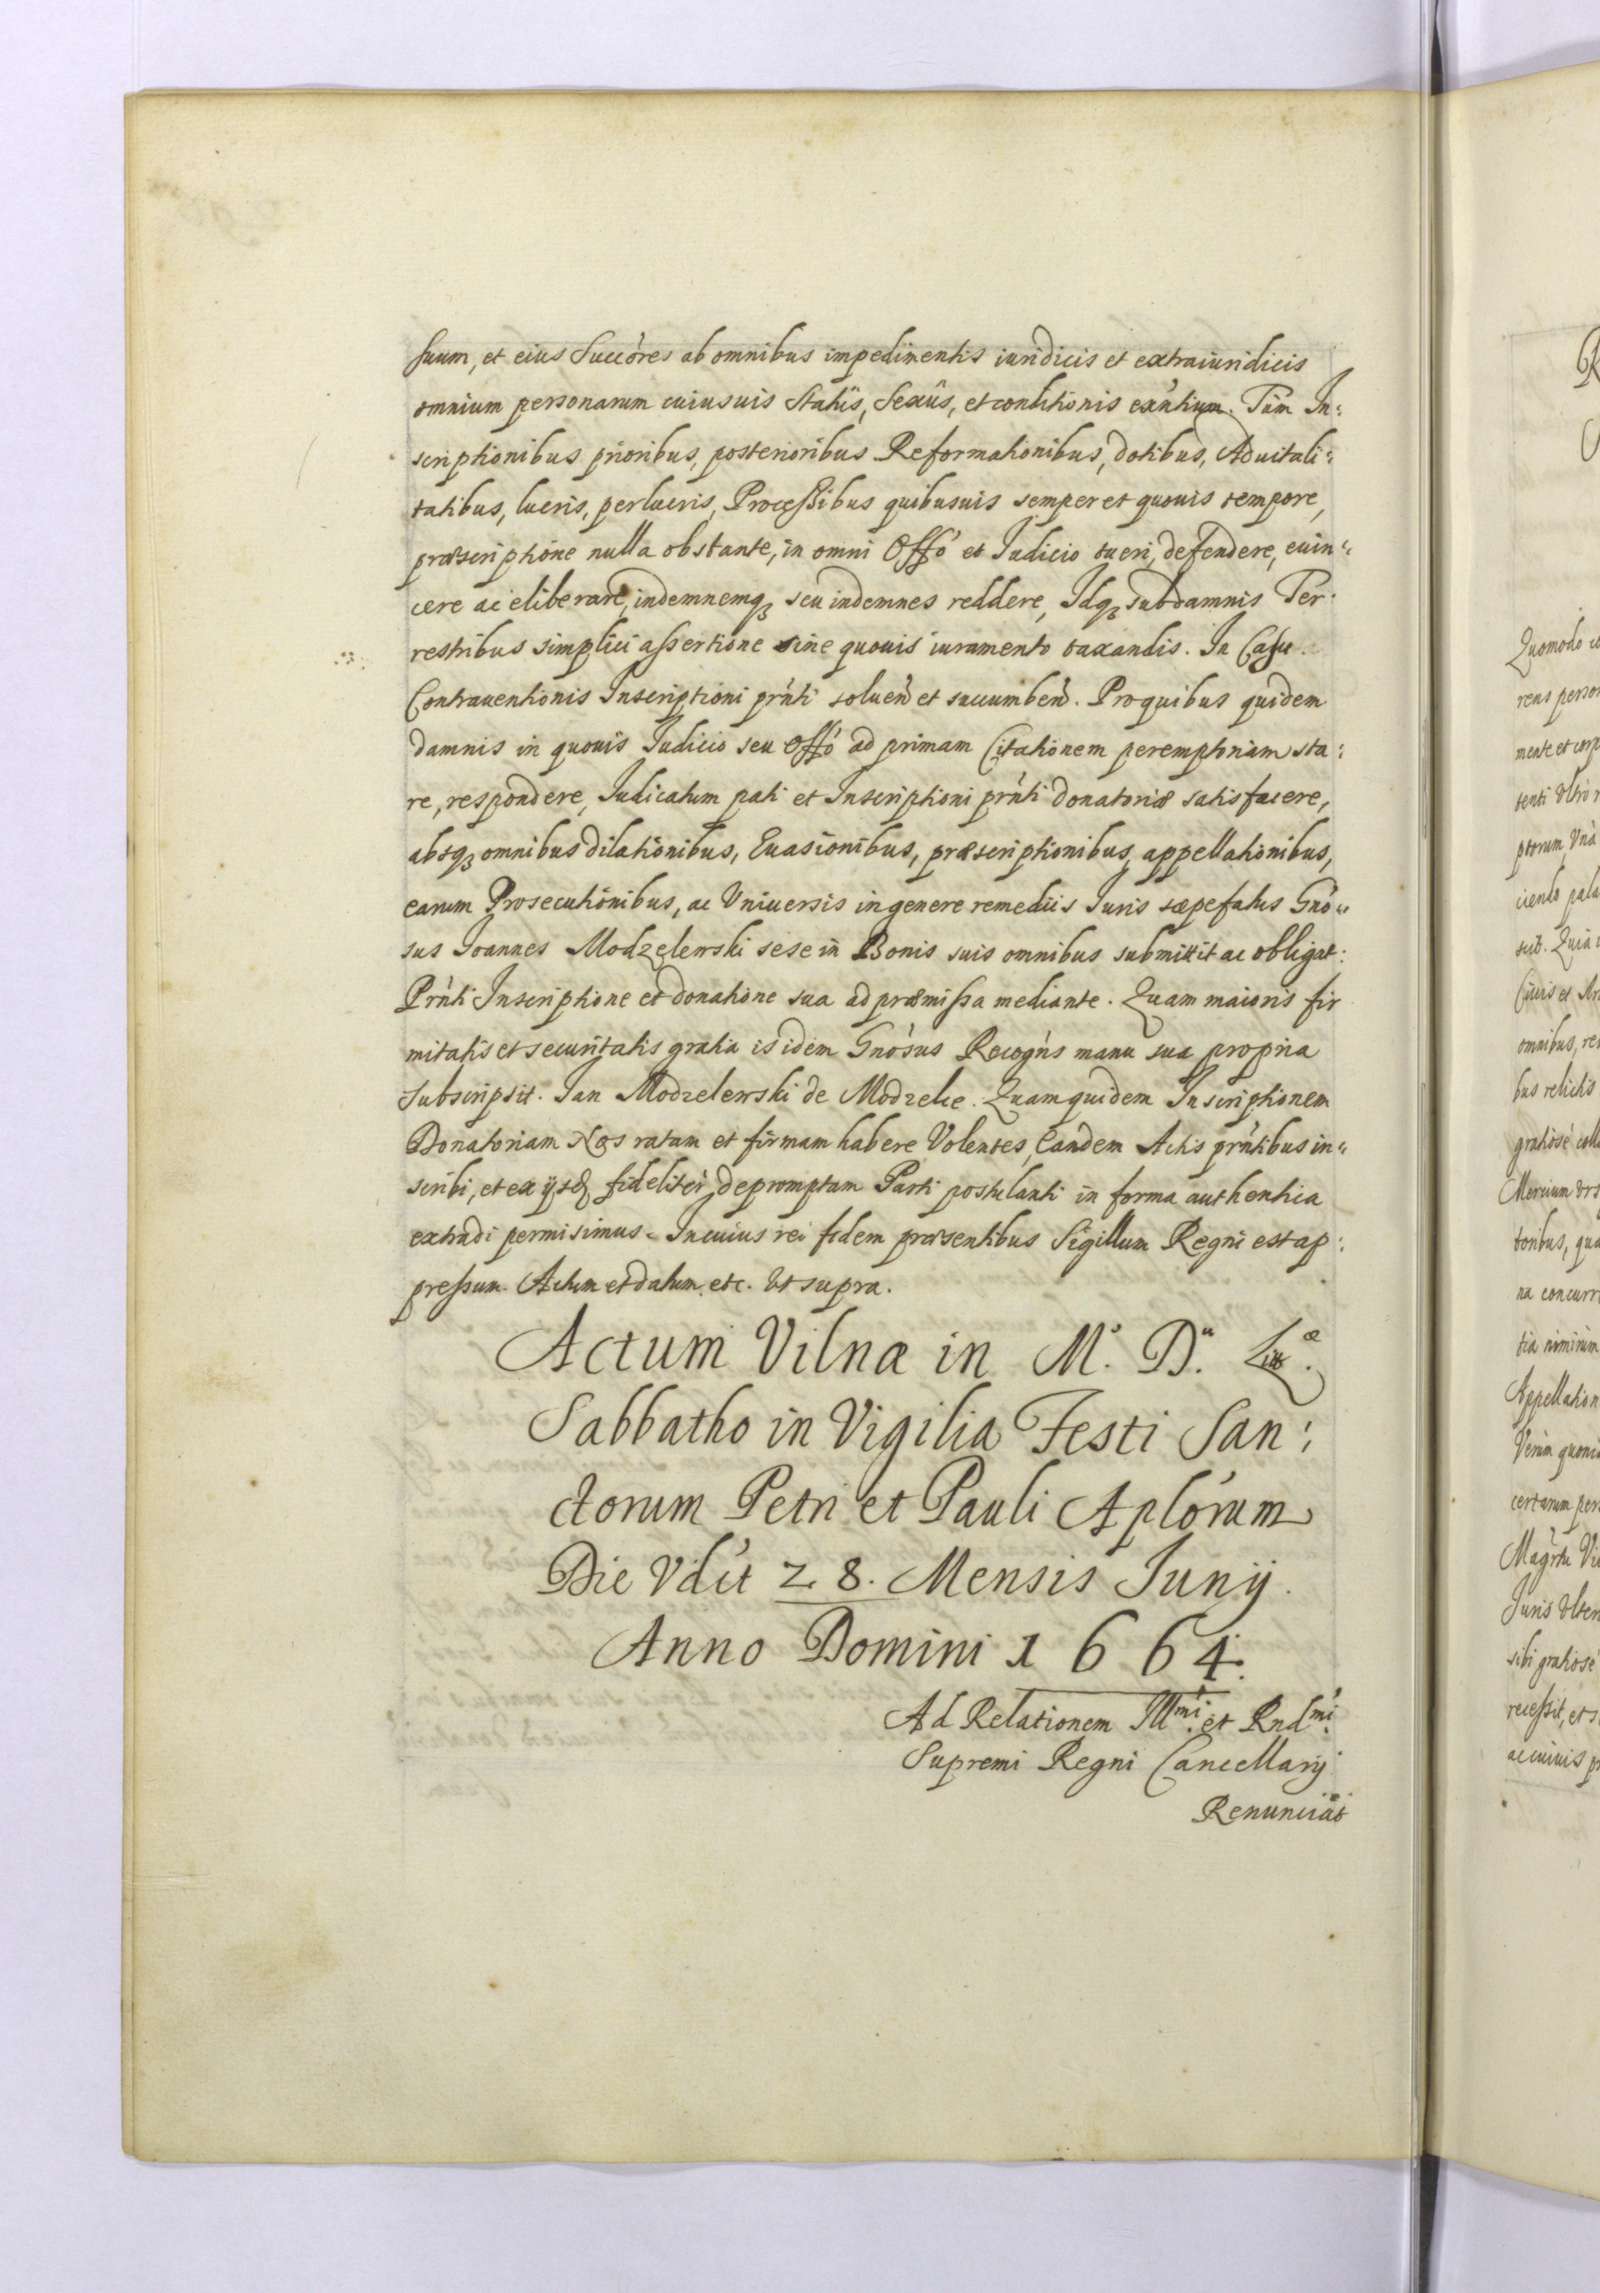 suum, et eius Succóres ab omnibus impedimentis iuridicis et extraiuridicis
omnium personarum cuiusuis Statûs, Sexûs, et conditionis exńtium. Tùm In:
scriptionibus prioribus, posterioribus Reformationibus, dotibus, Aduitali:
tatibus, lucris, perlucris, Processibus quibusuis semper et quouis tempore,
præscriptione nulla obstante, in omni Offó et Iudicio tueri, defendere, euin:
cere ac eliberare, indemnemq3 seu indemnes reddere, Idq3 sub damnis Ter:
restribus simplici assertione sine quouis iuramento taxandis. In Casu
Contrauentionis Inscriptioni prńti soluen̄ et succumben̄. Pro quibus quidem
damnis in quouis Iudicio seu Offó ad primam Citationem peremptoriam sta:
re, respondere, Iudicatum pati et Inscriptioni prńti donatoriæ satisfacere,
absq3 omnibus dilationibus, Euasionibus, præscriptionibus, appellationibus,
earum Prosecutionibus, ac Vniuersis in genere remediis Iuris sæpefatus Gnó:
sus Ioannes Modzelewski sese in Bonis suis omnibus submittit ac obligat:
Prńti Inscriptione et donatione sua ad præmissa mediante. Quam maioris fir
mitatis et securitatis gratia is idem Gnósus Recogńs manu sua propria
subscripsit. Jan Modzelewski de Modzele. Quam quidem Inscriptionem
Donatoriam Nos ratam et firmam habere Volentes, Eandem Actis prńtibus in:
scribi, et ex ijsd fideliter depromptam Parti postulanti in forma authentica
extradi permisimus. In cuius rei fidem præsentibus Sigillum Regni est ap:
pressum. Actum et datum etc. Vt supra.
Actum Vilnæ in M. D. Litt.
Sabbatho in Vigilia Festi San:
ctorum Petri et Pauli Aplórum
Die Vdĺt 28. Mensis Junij.
Anno Domini 1664.
Ad Relationem Illmi et Rndmi
Supremi Regni Cancellarij
Renunciat